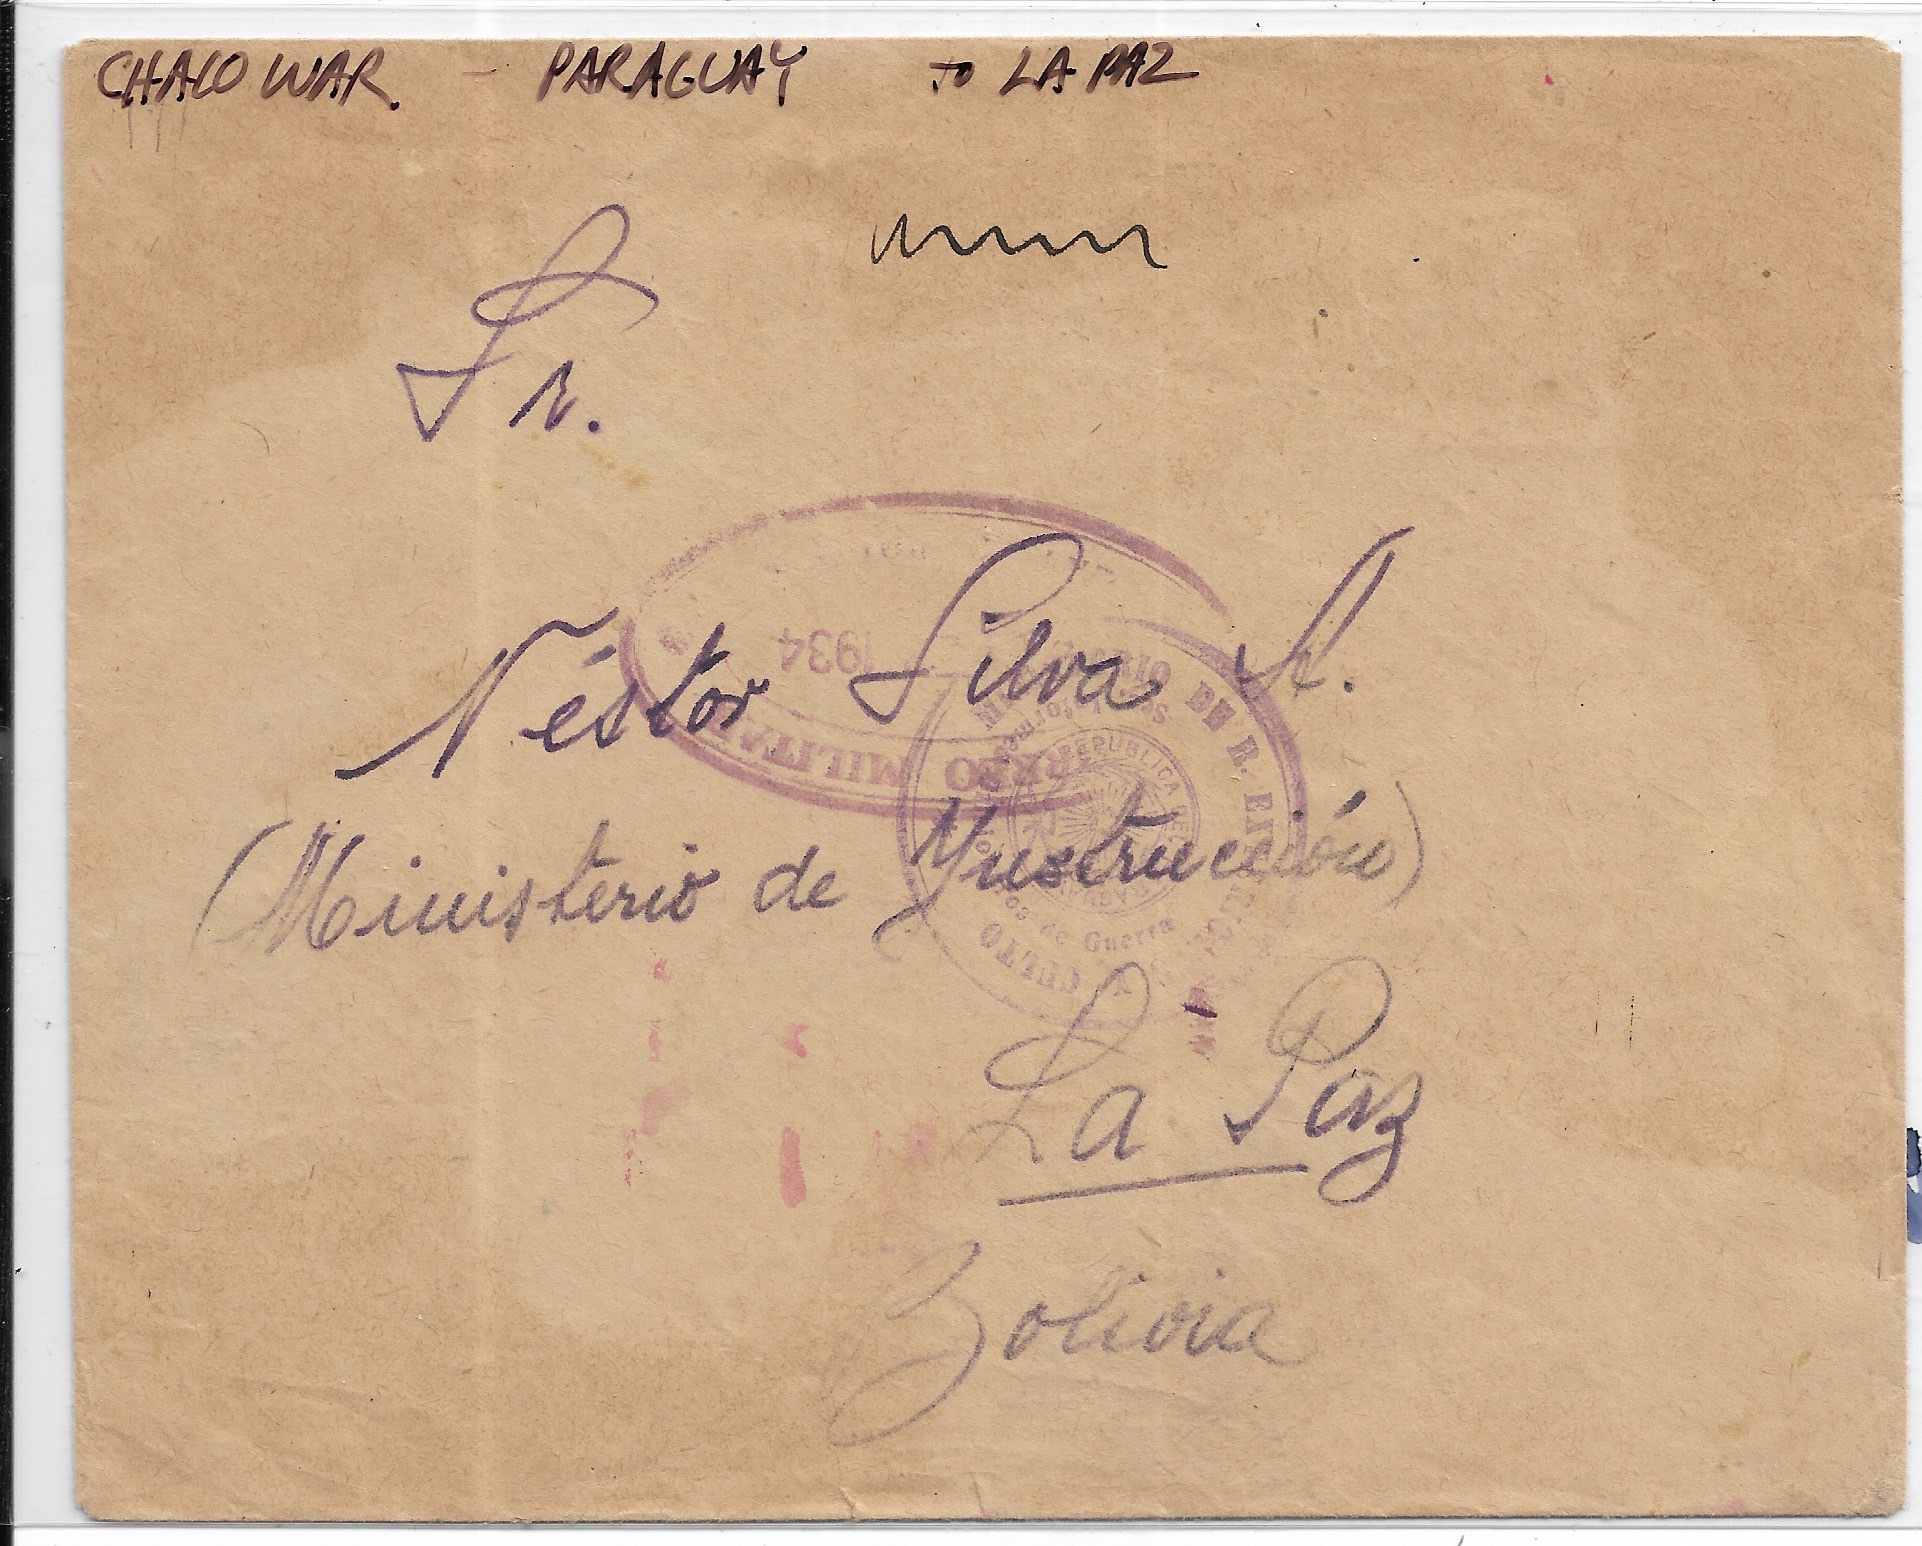 CHACO WAR. - PARAGUAY TO LA PAZ
Sr.
Néstor Silva A.
(Ministerio de Ynstrucción)
La Paz
Bolivia
1934
MILITAR
DE R. E.
Informes
REPUBLICA
de Guerra
Y CULTO